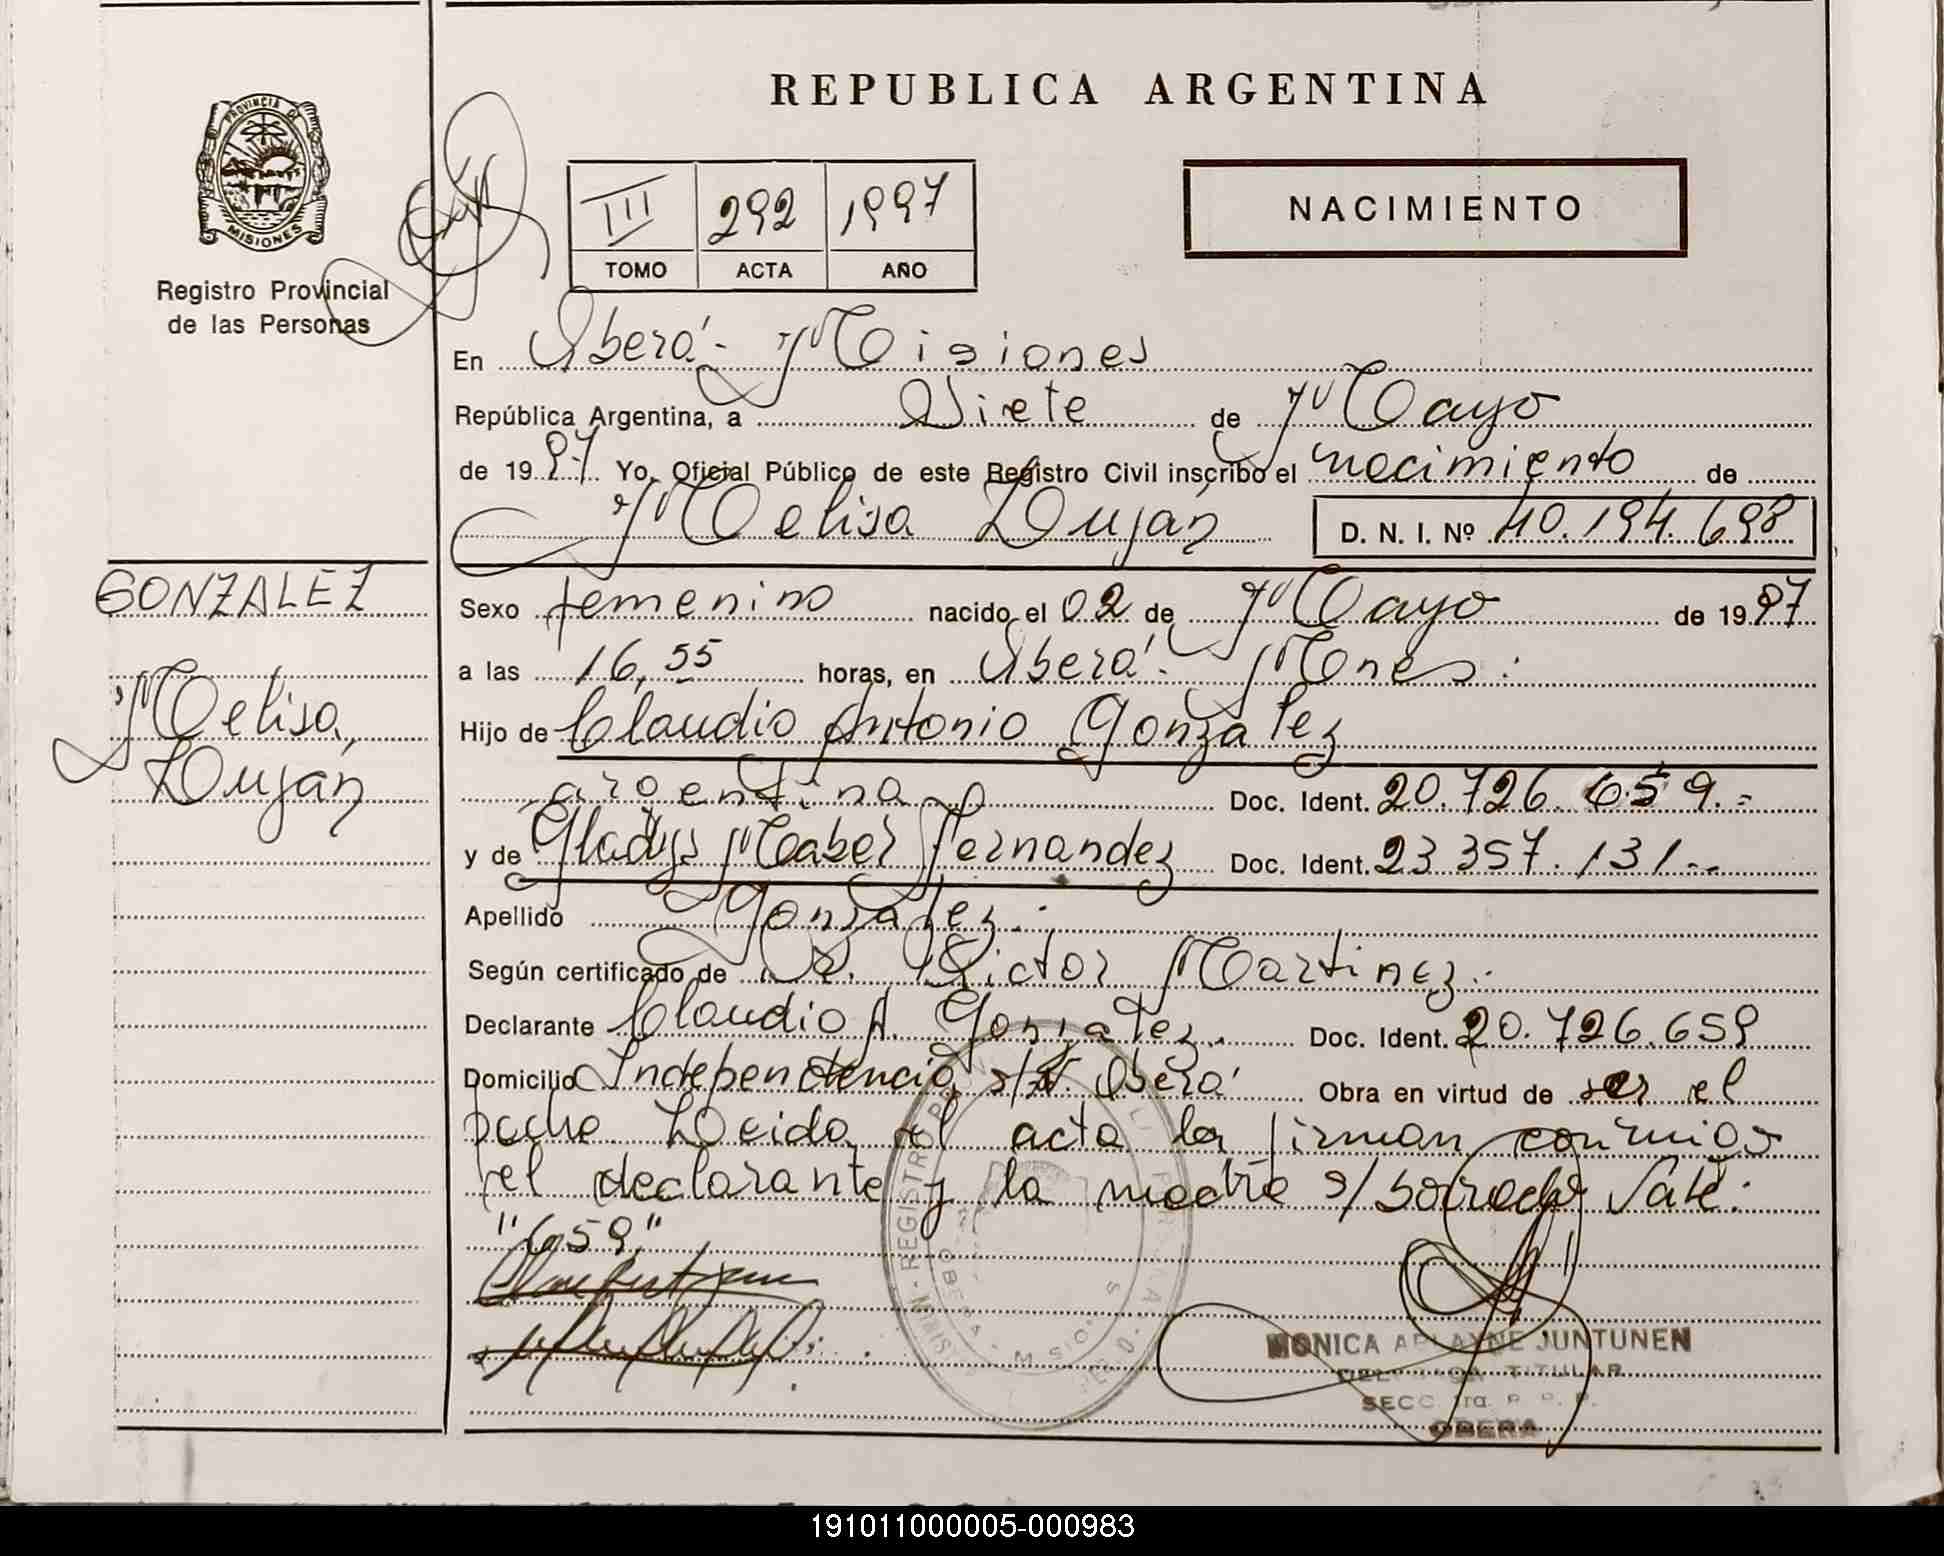 REPUBLICA ARGENTINA
PROVINCIA DE
MISIONES
Registro Provincial
de las Personas
III 292 1997
TOMO ACTA AÑO
NACIMIENTO
En Oberá - Misiones
República Argentina, a Siete de Mayo
de 1997 Yo, Oficial Público de este Registro Civil inscribo el nacimiento de
Melisa Luján D. N. I. Nº 40.194.698
GONZALEZ
Melisa
Luján
Sexo femenino nacido el 02 de Mayo de 1997
a las 16,55 horas, en Oberá - Mnes.
Hijo de Claudio Antonio Gonzalez
argentina Doc. Ident. 20.726.659.-
y de Gladys Mabel Fernandez Doc. Ident. 23.357.131.-
Apellido Gonzalez.
Según certificado de Dr. Victor Martinez.
Declarante Claudio A. Gonzalez. Doc. Ident. 20.726.659
Domicilio Independencia s/N. Oberá Obra en virtud de ser el
padre Leida el acta la firman conmigo
el declarante y la madre s/borrado Vale:
"659"
MONICA JUNTUNEN
TITULAR
SECC. 1ra. R. P. P.
OBERA
191011000005-000983